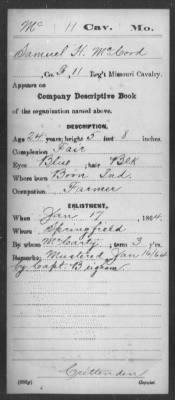 Mc 11 Cav. Mo.
Samuel H. McCord
, Co. F, 11 Reg't Missouri Cavalry.
Appears on
Company Descriptive Book
of the organization named above.
DESCRIPTION.
Age 24 years; height 5 feet 8 inches.
Complexion Fair
Eyes Blue; hair Blk
Where born Boon Ind.
Occupation Farmer
ENLISTMENT.
When Jan 17, 1864.
Where Springfield
By whom McCarty; term 3 y'rs.
Remarks: Mustered Jan 16/64
by Capt.
Crittenden
Copyist.